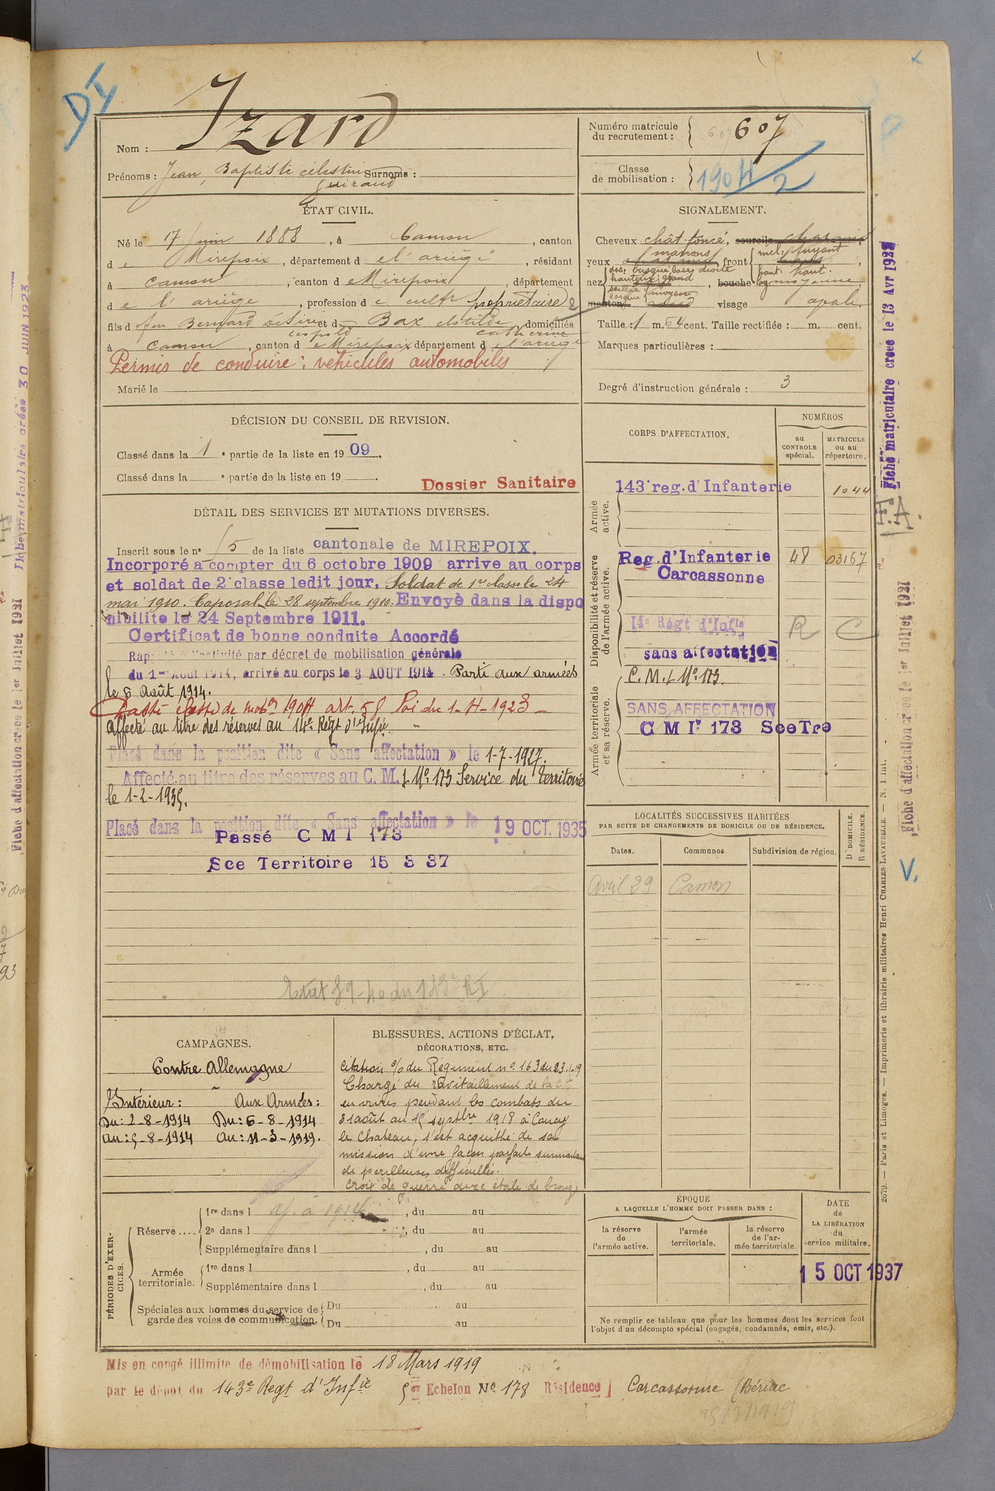 DI
Nom : Izard
Prénoms : Jean, Baptiste célestin Surnoms :
Guiraud
Numéro matricule du recrutement : 607
Classe de mobilisation : 1904/2
ÉTAT CIVIL.
Né le 17 juin 1888, à Camon, canton
de Mirepoix, département de l'ariège, résidant
à Camon, canton de Mirepoix, département
de l'ariège, profession de cultr propriétaire
fils d feu Bernard et d Bax clotilde domiciliés
léopold catherine
à Camon, canton de Mirepoix département de l'ariège
Permis de conduire : véhicules automobiles
Marié le
SIGNALEMENT.
Cheveux chât foncé, sourcils
yeux marrons front fuyant haut.
nez bouche moyenne
menton visage ovale
Taille : 1 m. 64 cent. Taille rectifiée : m. cent.
Marques particulières :
Degré d'instruction générale : 3
DÉCISION DU CONSEIL DE REVISION.
Classé dans la 1e partie de la liste en 1909.
Classé dans la e partie de la liste en 19
Dossier Sanitaire
DÉTAIL DES SERVICES ET MUTATIONS DIVERSES.
Inscrit sous le n° 15 de la liste cantonale de MIREPOIX.
Incorporé à compter du 6 octobre 1909 arrivé au corps
et soldat de 2e classe ledit jour. Soldat de 1re classe le 24
mai 1910. Caporal le 28 septembre 1910. Envoyé dans la dispo
nibilité le 24 Septembre 1911.
Certificat de bonne conduite Accordé
Rappelé à l'activité par décret de mobilisation générale
du 1er Aout 1914, arrivé au corps le 3 AOUT 1914. Parti aux armées
le 6 Août 1914.
Passé classe de mobon 1904 art. 58 loi du 1-4-1923
Affecté au titre des réserves au 14e Régt d'Infie.
Placé dans la position dite « Sans affectation » le 1-7-1927.
Affecté au titre des réserves au C. M. I No 173 Service du Territoire
le 1-2-1935.
Placé dans la position dite « Sans affectation » le 19 OCT. 1935
Passé C M I 173
Sce Territoire 15 3 37
CORPS D'AFFECTATION.
NUMÉROS
au CONTROLE spécial.
MATRICULE ou au répertoire.
Armée active.
143e reg. d'Infanterie 1044
Disponibilité et réserve de l'armée active.
Reg. d'Infanterie 48 03167
Carcassonne
14e Régt d'Infie R C
sans affectation
Armée territoriale et sa réserve.
C. M. I No 173
SANS AFFECTATION
C M Ir 173 Sce Tre
LOCALITÉS SUCCESSIVES HABITÉES
PAR SUITE DE CHANGEMENTS DE DOMICILE OU DE RÉSIDENCE.
Dates. Communes. Subdivision de région. D. DOMICILE. R RÉSIDENCE.
Avril 39 Camon
CAMPAGNES.
Contre Allemagne
Intérieur : Aux Armées :
Du : 2-8-1914 Du : 6-8-1914
au : 5-8-1914 au : 11-3-1919.
BLESSURES, ACTIONS D'ÉCLAT,
DÉCORATIONS, ETC.
Citation o/o du Régiment no 163 du 23.1.19
Chargé du ravitaillement de la Cie
en vivres pendant les combats du
31 août au 15 septbre 1918 à Coucy
le Chateau, s'est acquitté de sa
mission d'une façon parfaite surmontant
de périlleuses difficultés.
Croix de guerre avec étoile de bronze
PÉRIODES D'EXERCICES.
Réserve
1re dans l , du au
2e dans l , du au
Supplémentaire dans l , du au
Armée territoriale.
1re dans l , du au
Supplémentaire dans l , du au
Spéciales aux hommes du service de garde des voies de communication.
Du au
Du au
ÉPOQUE
A LAQUELLE L'HOMME DOIT PASSER DANS :
la réserve de l'armée active.
l'armée territoriale.
la réserve de l'armée territoriale.
DATE de LA LIBÉRATION du service militaire.
15 OCT 1937
Ne remplir ce tableau que pour les hommes dont les services font
l'objet d'un décompte spécial (engagés, condamnés, omis, etc.).
Mis en congé illimité de démobilisation le 18 Mars 1919
par le dépôt du 143e Regt d'Infie Echelon No 178 Résidence Carcassonne
Fiche matriculaire créée le 13 Avr 1927
F.A.
Fiche d'affectation créée le 1er Juillet 1921
V.
2679. — Paris et Limoges. — Imprimerie et librairie militaires Henri CHARLES-LAVAUZELLE. — N. 1 int.
Fiche matriculaire créée 30 JUIN 1923
Fiche d'affectation créée le 1er Juillet 1921